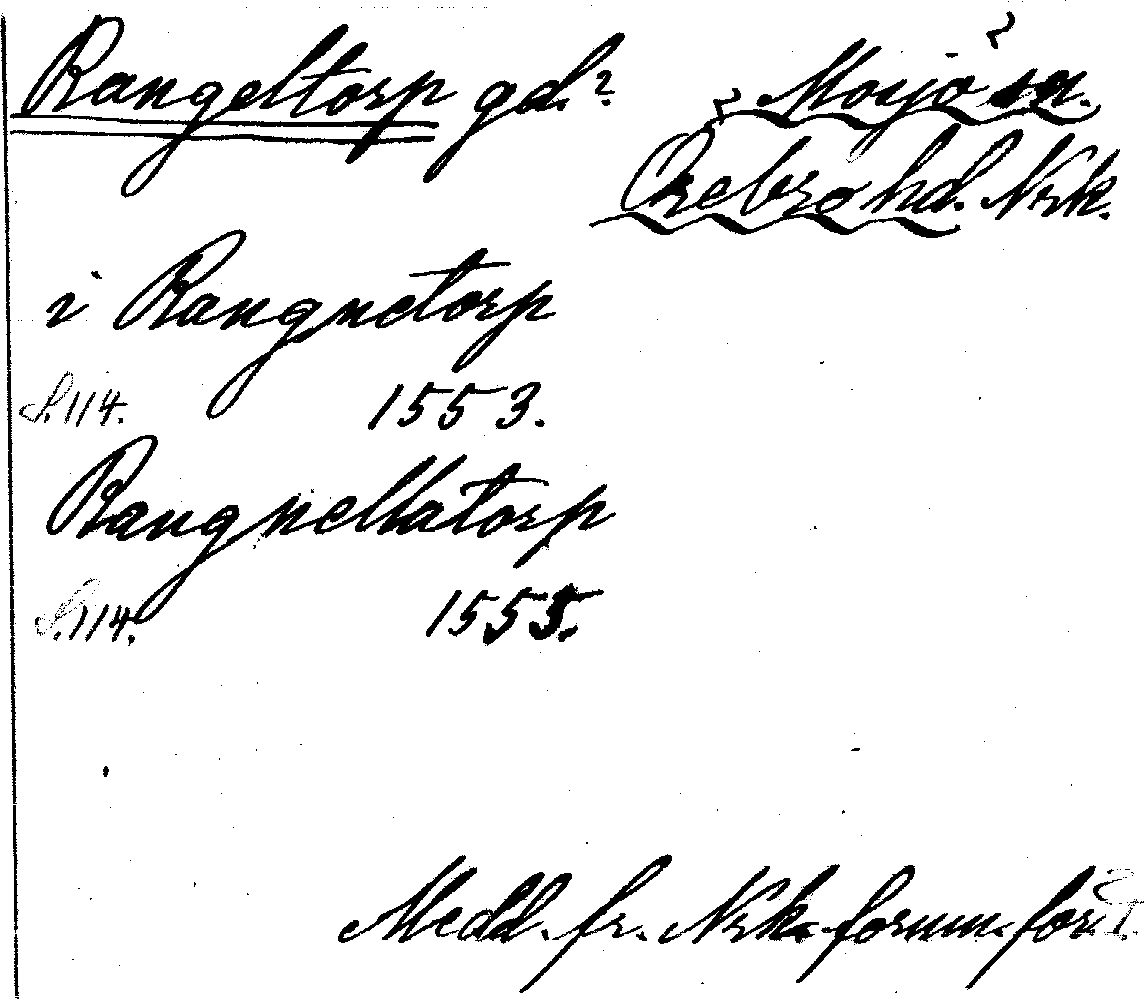 Rangeltorp gd.? Mosjö sn.
Örebro hd. Nrk.
i Rangnetorp
S. 114. 1553.
Rangnellatorp
S. 114. 1555.
Medd. fr. Nrk. fornm. för. I.